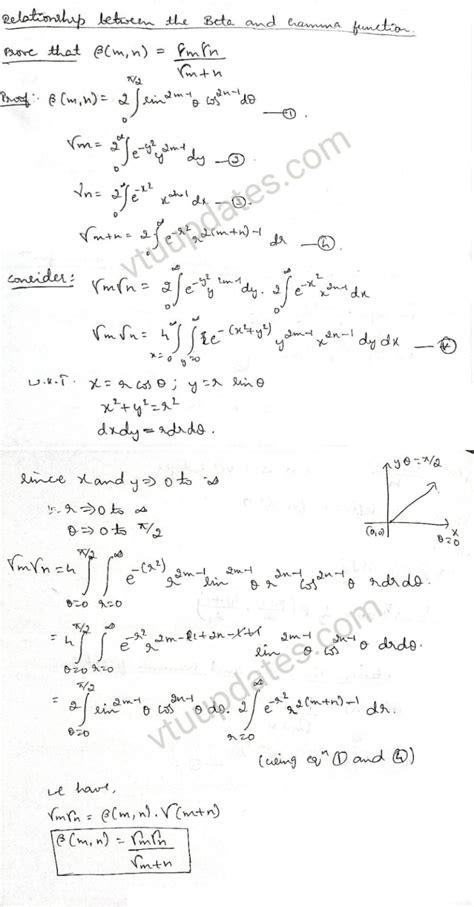 Relationship between the Beta and Gamma function.
Prove that β(m,n) = √m√n / √m+n
Proof:- β(m,n) = 2 ∫₀^(π/2) sin^(2m-1) θ cos^(2n-1) dθ —①.
√m = 2 ∫₀^∞ e^(-y²) y^(2m-1) dy —②
√n = 2 ∫₀^∞ e^(-x²) x^(2n-1) dx —③.
√m+n = 2 ∫₀^∞ e^(-r²) r^(2(m+n)-1) dr —④
Consider: √m√n = 2 ∫₀^∞ e^(-y²) y^(2m-1) dy. 2 ∫₀^∞ e^(-x²) x^(2n-1) dx
√m √n = 4 ∫_(x=0)^∞ ∫_(y=0)^∞ e^(-(x²+y²)) y^(2m-1) x^(2n-1) dy dx
W.K.T. x = r cos θ ; y = r sin θ
x²+y² = r²
dxdy = rdrdθ.
since x and y ⇒ 0 to ∞
∴ r ⇒ 0 to ∞
θ ⇒ 0 to π/2
y θ=π/2
(0,0)
x
θ=0
√m√n = 4 ∫_(θ=0)^(π/2) ∫_(r=0)^∞ e^(-(r²)) r^(2m-1) sin^(2m-1) θ r^(2n-1) cos^(2n-1) θ rdrdθ.
= 4 ∫_(θ=0)^(π/2) ∫_(r=0)^∞ e^(-r²) r^(2m-1+2n-1+1) sin^(2m-1) θ cos^(2n-1) θ drdθ.
= 2 ∫₀^(π/2) sin^(2m-1) θ cos^(2n-1) θ dθ. 2 ∫_(r=0)^∞ e^(-r²) r^(2(m+n)-1) dr.
(using eqⁿ ① and ④)
we have,
√m√n = β(m,n). √(m+n)
β(m,n) = √m√n / √m+n
vtuupdates.com
vtuupdates.com